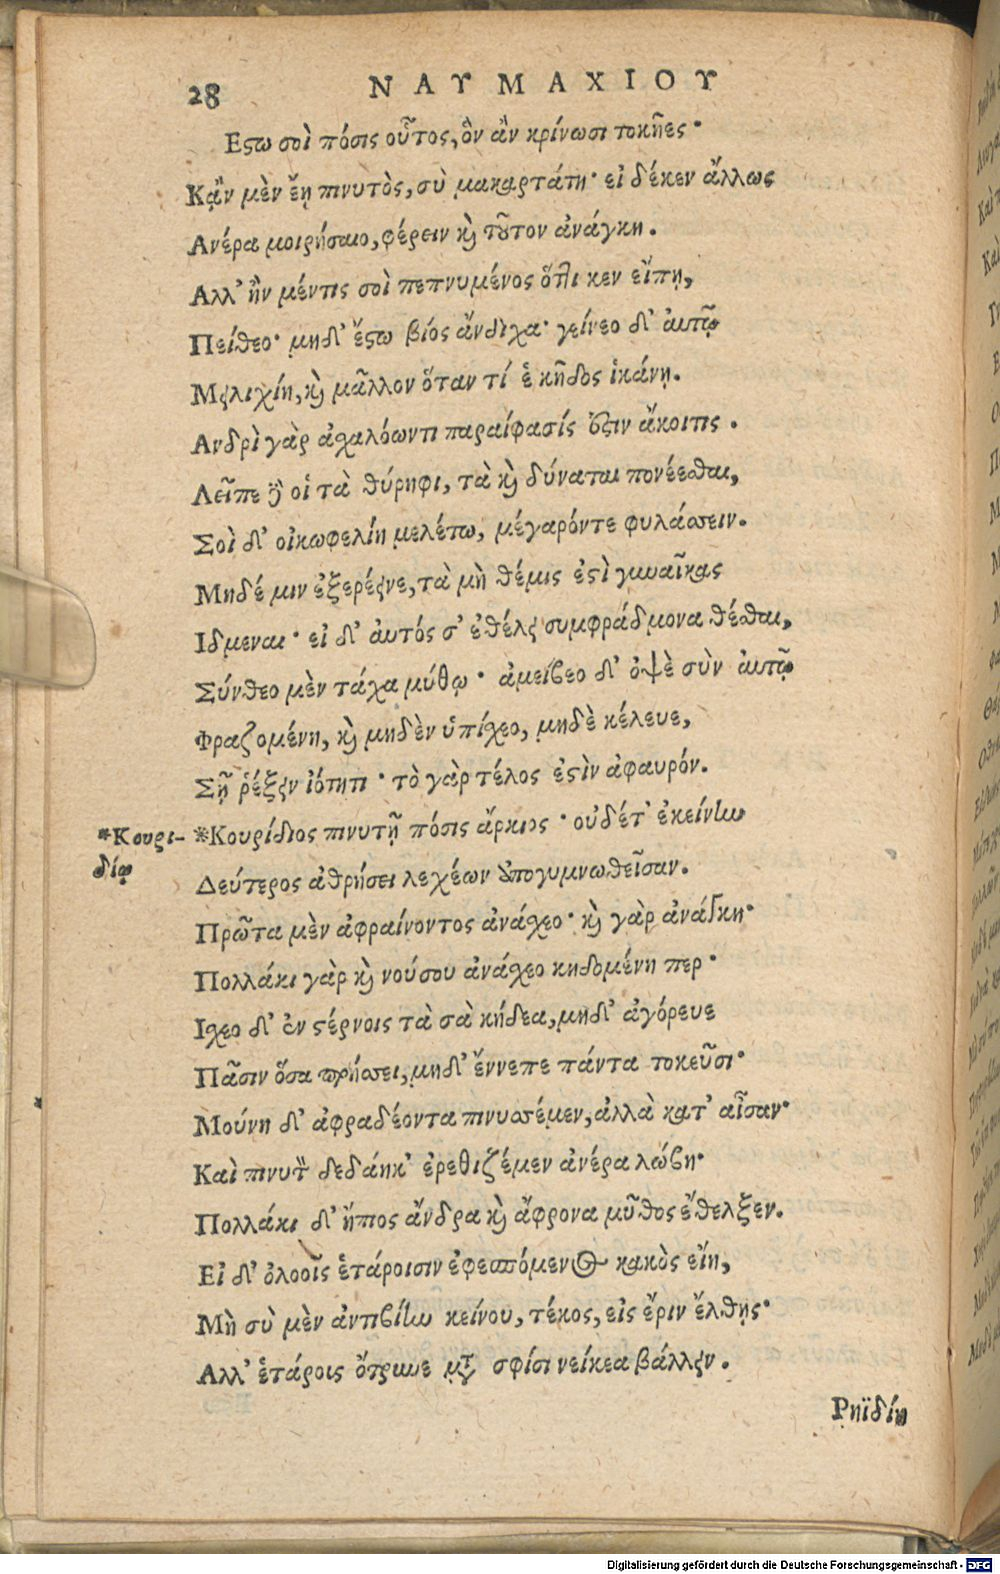 28 ΝΑΥΜΑΧΙΟΥ
Εϛω σοὶ πόσις οὗτος, ὃν ἂν κρίνωσι τοκῆες·
Κᾂν μὲν ἔῃ πινυτὸς, σὺ μακαρτάτη· εἰ δέκεν ἄλλως
Ανέρα μοιρήσαιο, φέρειν κὶ τῦτον ἀνάγκη.
Αλλ' ἢν μέντις σοὶ πεπνυμένος ὅτλι κεν εἴπῃ,
Πείθεο· μηδ' ἔϛω βίος ἄνδιχα· γείνεο δ' αὐτῷ
Μειλιχίη, κὶ μᾶλλον ὅταν τί ἑ κῆδος ἱκάνῃ.
Ανδρὶ γὰρ ἀχαλόωντι παραίφασίς ἐϛιν ἄκοιτις.
Λεῖπε ἢ οἱ τὰ θύρηφι, τὰ κὶ δύναται πονέεσθαι,
Σοὶ δ' οἰκωφελίη μελέτω, μέγαρόντε φυλάσσειν.
Μηδέ μιν ἐξερέεινε, τὰ μὴ θέμις ἐϛὶ γυναῖκας
Ιδμεναι· εἰ δ' αὐτός σ' ἐθέλει συμφράδμονα θέσθαι,
Σύνθεο μὲν τάχα μύθῳ· ἀμείβεο δ' ὀψὲ σὺν αὐτῷ
Φραζομένη, κὶ μηδὲν ὑπίσχεο, μηδὲ κέλευε,
Σῇ ῥέξειν ἰότητι· τὸ γὰρ τέλος ἐϛὶν ἀφαυρόν.
*Κουρι- *Κουρίδιος πινυτῇ πόσις ἄρκιος· οὐδέτ' ἐκείνην
δίῳ Δεύτερος ἀθρήσει λεχέων ὑπογυμνωθεῖσαν.
Πρῶτα μὲν ἀφραίνοντος ἀνάσχεο· κὶ γὰρ ἀνάγκη·
Πολλάκι γὰρ κὶ νούσου ἀνάσχεο κηδομένη περ·
Ισχεο δ' ἐν ϛέρνοις τὰ σὰ κήδεα, μηδ' ἀγόρευε
Πᾶσιν ὅσα πρήσσει, μηδ' ἔννεπε πάντα τοκεῦσι·
Μούνη δ' ἀφραδέοντα πινυσσέμεν, ἀλλὰ κατ' αἶσαν·
Καὶ πινυτὴ δεδάηκ' ἐρεθιζέμεν ἀνέρα λώβη·
Πολλάκι δ' ἤπιος ἄνδρα κὶ ἄφρονα μῦθος ἔθελξεν.
Εἰ δ' ὀλοοῖς ἑτάροισιν ἐφεσπόμενος κακὸς εἴη,
Μὴ σὺ μὲν ἀντιβίην κείνου, τέκος, εἰς ἔριν ἔλθῃς·
Αλλ' ἑτάροις ὄτρυνε μτ σφίσι νείκεα βάλλειν.
Ρηϊδίη
Digitalisierung gefördert durch die Deutsche Forschungsgemeinschaft - DFG